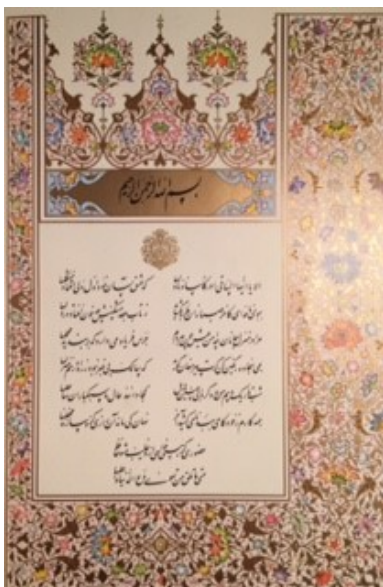 بسم الله الرحمن الرحیم
الا یا ایها الساقی ادر کاسا و ناولها که عشق آسان نمود اول ولی افتاد مشکلها
ببوی نافه‌ای کاخر صبا زان طره بگشاید ز تاب جعد مشکینش چه خون افتاد در دلها
مرا در منزل جانان چه امن عیش چون هر دم جرس فریاد می‌دارد که بربندید محملها
به می سجاده رنگین کن گرت پیر مغان گوید که سالک بی‌خبر نبود ز راه و رسم منزلها
شب تاریک و بیم موج و گردابی چنین هایل کجا دانند حال ما سبکباران ساحلها
همه کارم ز خود کامی به بدنامی کشید آخر نهان کی ماند آن رازی کزو سازند محفلها
حضوری گر همی خواهی ازو غایب مشو حافظ
متی ما تلق من تهوی دع الدنیا و اهملها